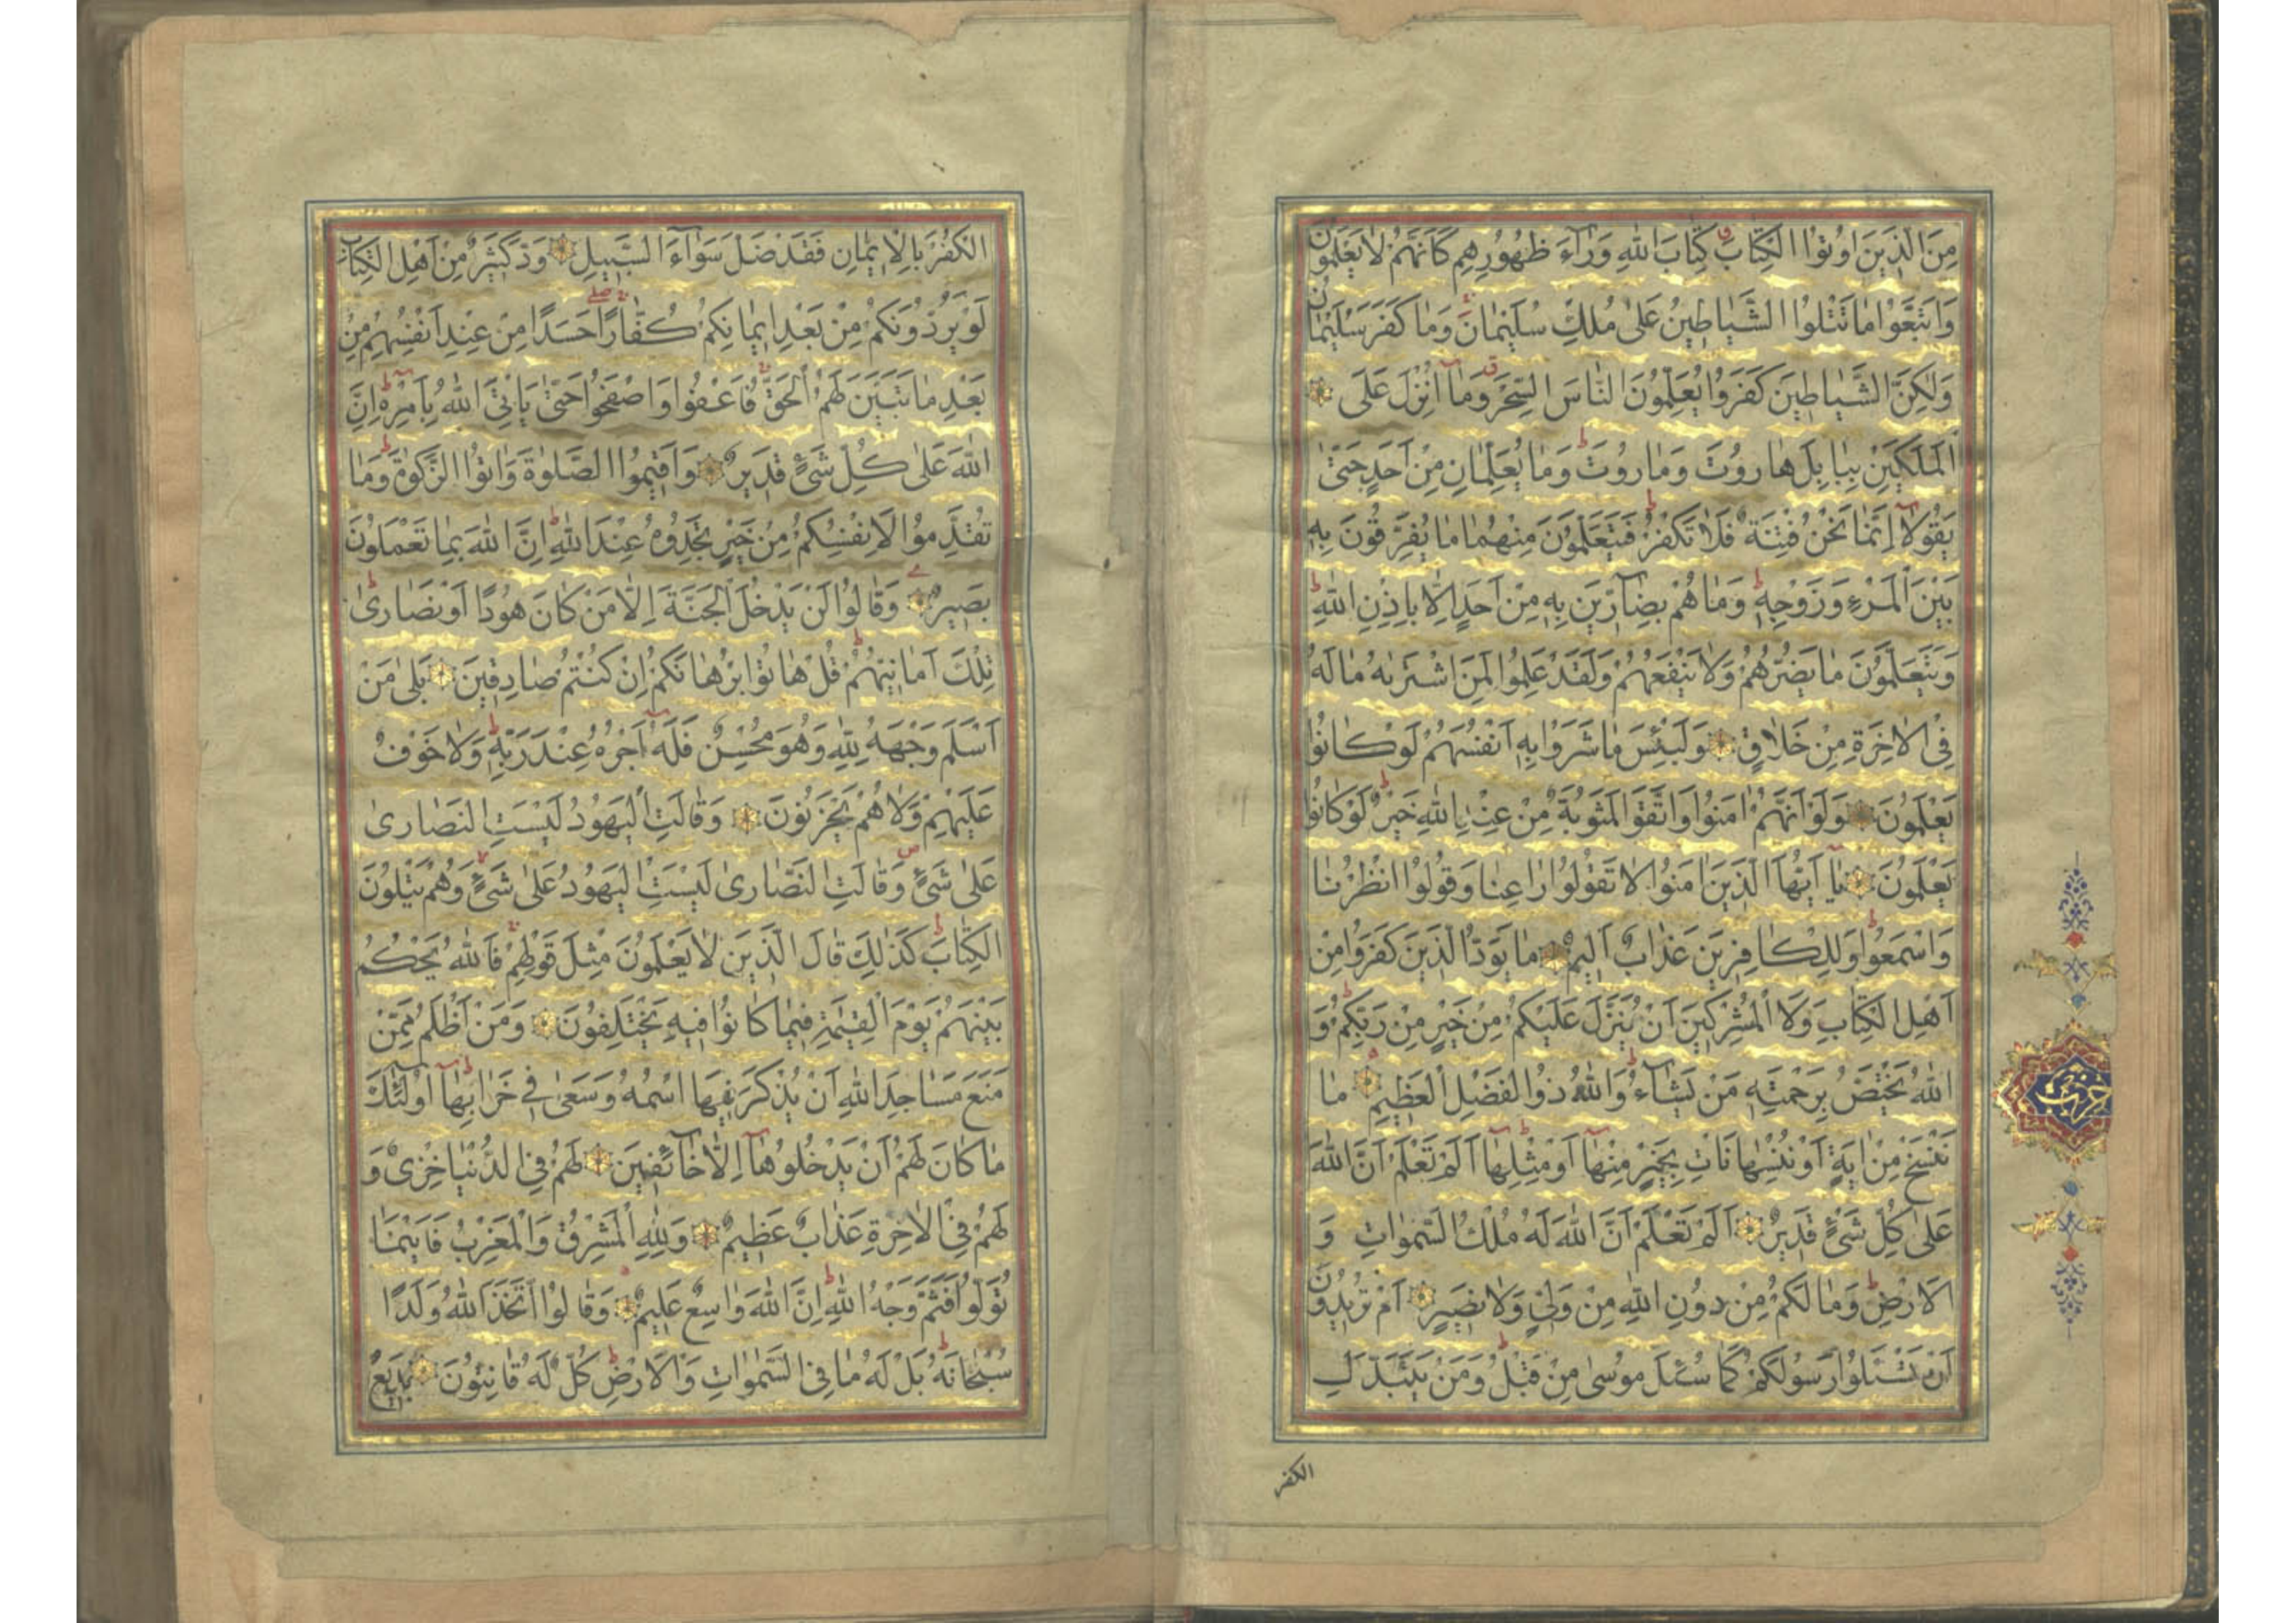 مِنَ الَّذِينَ اُوتُوا الْكِتَابَ كِتَابَ اللهِ وَرَآءَ ظُهُورِهِمْ كَاَنَّهُمْ لَا يَعْلَمُونَ
وَاتَّبَعُوا مَا تَتْلُوا الشَّيَاطِينُ عَلٰى مُلْكِ سُلَيْمَانَ وَمَا كَفَرَ سُلَيْمَانُ
وَلٰكِنَّ الشَّيَاطِينَ كَفَرُوا يُعَلِّمُونَ النَّاسَ السِّحْرَ وَمَآ اُنْزِلَ عَلَى
الْمَلَكَيْنِ بِبَابِلَ هَارُوتَ وَمَارُوتَ وَمَا يُعَلِّمَانِ مِنْ اَحَدٍ حَتّٰى
يَقُولَآ اِنَّمَا نَحْنُ فِتْنَةٌ فَلَا تَكْفُرْ فَيَتَعَلَّمُونَ مِنْهُمَا مَا يُفَرِّقُونَ بِهِ
بَيْنَ الْمَرْءِ وَزَوْجِهِ وَمَا هُمْ بِضَآرِّينَ بِهِ مِنْ اَحَدٍ اِلَّا بِاِذْنِ اللهِ
وَيَتَعَلَّمُونَ مَا يَضُرُّهُمْ وَلَا يَنْفَعُهُمْ وَلَقَدْ عَلِمُوا لَمَنِ اشْتَرٰيهُ مَا لَهُ
فِي الْاٰخِرَةِ مِنْ خَلَاقٍ وَلَبِئْسَ مَا شَرَوْا بِهِ اَنْفُسَهُمْ لَوْ كَانُوا
يَعْلَمُونَ وَلَوْ اَنَّهُمْ اٰمَنُوا وَاتَّقَوْا لَمَثُوبَةٌ مِنْ عِنْدِ اللهِ خَيْرٌ لَوْ كَانُوا
يَعْلَمُونَ يَآ اَيُّهَا الَّذِينَ اٰمَنُوا لَا تَقُولُوا رَاعِنَا وَقُولُوا انْظُرْنَا
وَاسْمَعُوا وَلِلْكَافِرِينَ عَذَابٌ اَلِيمٌ مَا يَوَدُّ الَّذِينَ كَفَرُوا مِنْ
اَهْلِ الْكِتَابِ وَلَا الْمُشْرِكِينَ اَنْ يُنَزَّلَ عَلَيْكُمْ مِنْ خَيْرٍ مِنْ رَبِّكُمْ وَ
اللهُ يَخْتَصُّ بِرَحْمَتِهِ مَنْ يَشَآءُ وَاللهُ ذُو الْفَضْلِ الْعَظِيمِ مَا
نَنْسَخْ مِنْ اٰيَةٍ اَوْ نُنْسِهَا نَاْتِ بِخَيْرٍ مِنْهَآ اَوْ مِثْلِهَآ اَلَمْ تَعْلَمْ اَنَّ اللهَ
عَلٰى كُلِّ شَيْءٍ قَدِيرٌ اَلَمْ تَعْلَمْ اَنَّ اللهَ لَهُ مُلْكُ السَّمٰوَاتِ وَ
الْاَرْضِ وَمَا لَكُمْ مِنْ دُونِ اللهِ مِنْ وَلِيٍّ وَلَا نَصِيرٍ اَمْ تُرِيدُونَ
اَنْ تَسْئَلُوا رَسُولَكُمْ كَمَا سُئِلَ مُوسٰى مِنْ قَبْلُ وَمَنْ يَتَبَدَّلِ
الكفر
حزب
الْكُفْرَ بِالْاِيمَانِ فَقَدْ ضَلَّ سَوَآءَ السَّبِيلِ وَدَّ كَثِيرٌ مِنْ اَهْلِ الْكِتَابِ
لَوْ يَرُدُّونَكُمْ مِنْ بَعْدِ اِيمَانِكُمْ كُفَّارًا حَسَدًا مِنْ عِنْدِ اَنْفُسِهِمْ مِنْ
بَعْدِ مَا تَبَيَّنَ لَهُمُ الْحَقُّ فَاعْفُوا وَاصْفَحُوا حَتّٰى يَاْتِيَ اللهُ بِاَمْرِهِ اِنَّ
اللهَ عَلٰى كُلِّ شَيْءٍ قَدِيرٌ وَاَقِيمُوا الصَّلٰوةَ وَاٰتُوا الزَّكٰوةَ وَمَا
تُقَدِّمُوا لِاَنْفُسِكُمْ مِنْ خَيْرٍ تَجِدُوهُ عِنْدَ اللهِ اِنَّ اللهَ بِمَا تَعْمَلُونَ
بَصِيرٌ وَقَالُوا لَنْ يَدْخُلَ الْجَنَّةَ اِلَّا مَنْ كَانَ هُودًا اَوْ نَصَارٰى
تِلْكَ اَمَانِيُّهُمْ قُلْ هَاتُوا بُرْهَانَكُمْ اِنْ كُنْتُمْ صَادِقِينَ بَلٰى مَنْ
اَسْلَمَ وَجْهَهُ لِلّٰهِ وَهُوَ مُحْسِنٌ فَلَهُ اَجْرُهُ عِنْدَ رَبِّهِ وَلَا خَوْفٌ
عَلَيْهِمْ وَلَا هُمْ يَحْزَنُونَ وَقَالَتِ الْيَهُودُ لَيْسَتِ النَّصَارٰى
عَلٰى شَيْءٍ وَقَالَتِ النَّصَارٰى لَيْسَتِ الْيَهُودُ عَلٰى شَيْءٍ وَهُمْ يَتْلُونَ
الْكِتَابَ كَذٰلِكَ قَالَ الَّذِينَ لَا يَعْلَمُونَ مِثْلَ قَوْلِهِمْ فَاللهُ يَحْكُمُ
بَيْنَهُمْ يَوْمَ الْقِيٰمَةِ فِيمَا كَانُوا فِيهِ يَخْتَلِفُونَ وَمَنْ اَظْلَمُ مِمَّنْ
مَنَعَ مَسَاجِدَ اللهِ اَنْ يُذْكَرَ فِيهَا اسْمُهُ وَسَعٰى فِي خَرَابِهَآ اُولٰٓئِكَ
مَا كَانَ لَهُمْ اَنْ يَدْخُلُوهَآ اِلَّا خَآئِفِينَ لَهُمْ فِي الدُّنْيَا خِزْيٌ وَ
لَهُمْ فِي الْاٰخِرَةِ عَذَابٌ عَظِيمٌ وَلِلّٰهِ الْمَشْرِقُ وَالْمَغْرِبُ فَاَيْنَمَا
تُوَلُّوا فَثَمَّ وَجْهُ اللهِ اِنَّ اللهَ وَاسِعٌ عَلِيمٌ وَقَالُوا اتَّخَذَ اللهُ وَلَدًا
سُبْحَانَهُ بَلْ لَهُ مَا فِي السَّمٰوَاتِ وَالْاَرْضِ كُلٌّ لَهُ قَانِتُونَ بَدِيعُ